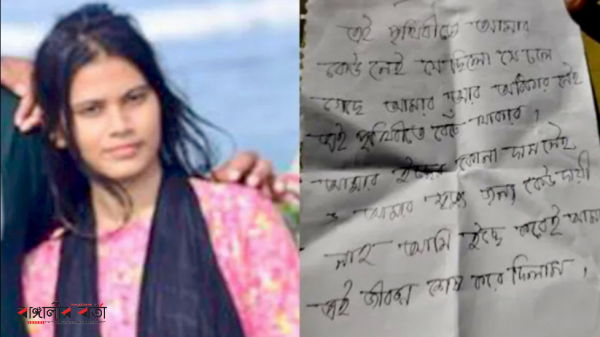 এই পৃথিবীতে আমার
কেউ নেই যে ছিলো সে চলে
গেছে আমার দুনিয়ার অধিকার নেই
এই পৃথিবীতে বেঁচে থাকার।
আমার কোনো দাম নেই
আমার মৃত্যুর জন্য কেউ দায়ী
নাহ আমি ইচ্ছে করেই আমার
এই জীবন শেষ করে দিলাম।